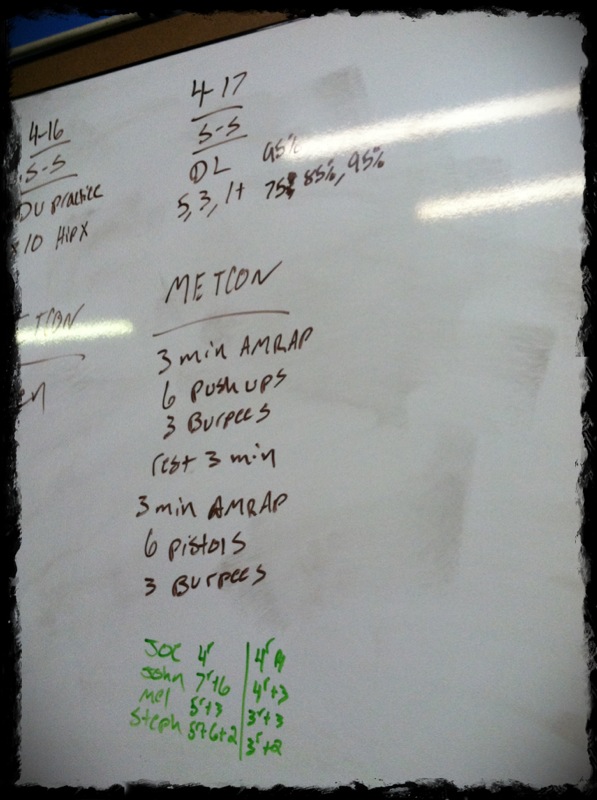 4-16
S-S
DU practice
10 HIPX
METCON
4-17
S-S
DL 95%
5, 3, 1+ 75% 85%, 95%
METCON
3 min AMRAP
6 push ups
3 Burpees
rest 3 min
3 min AMRAP
6 pistols
3 Burpees
JOE 4r 4r
John 7r+6 4r+3
Mel 5r+3 3r+3
Steph 5r+6+2 3r+2